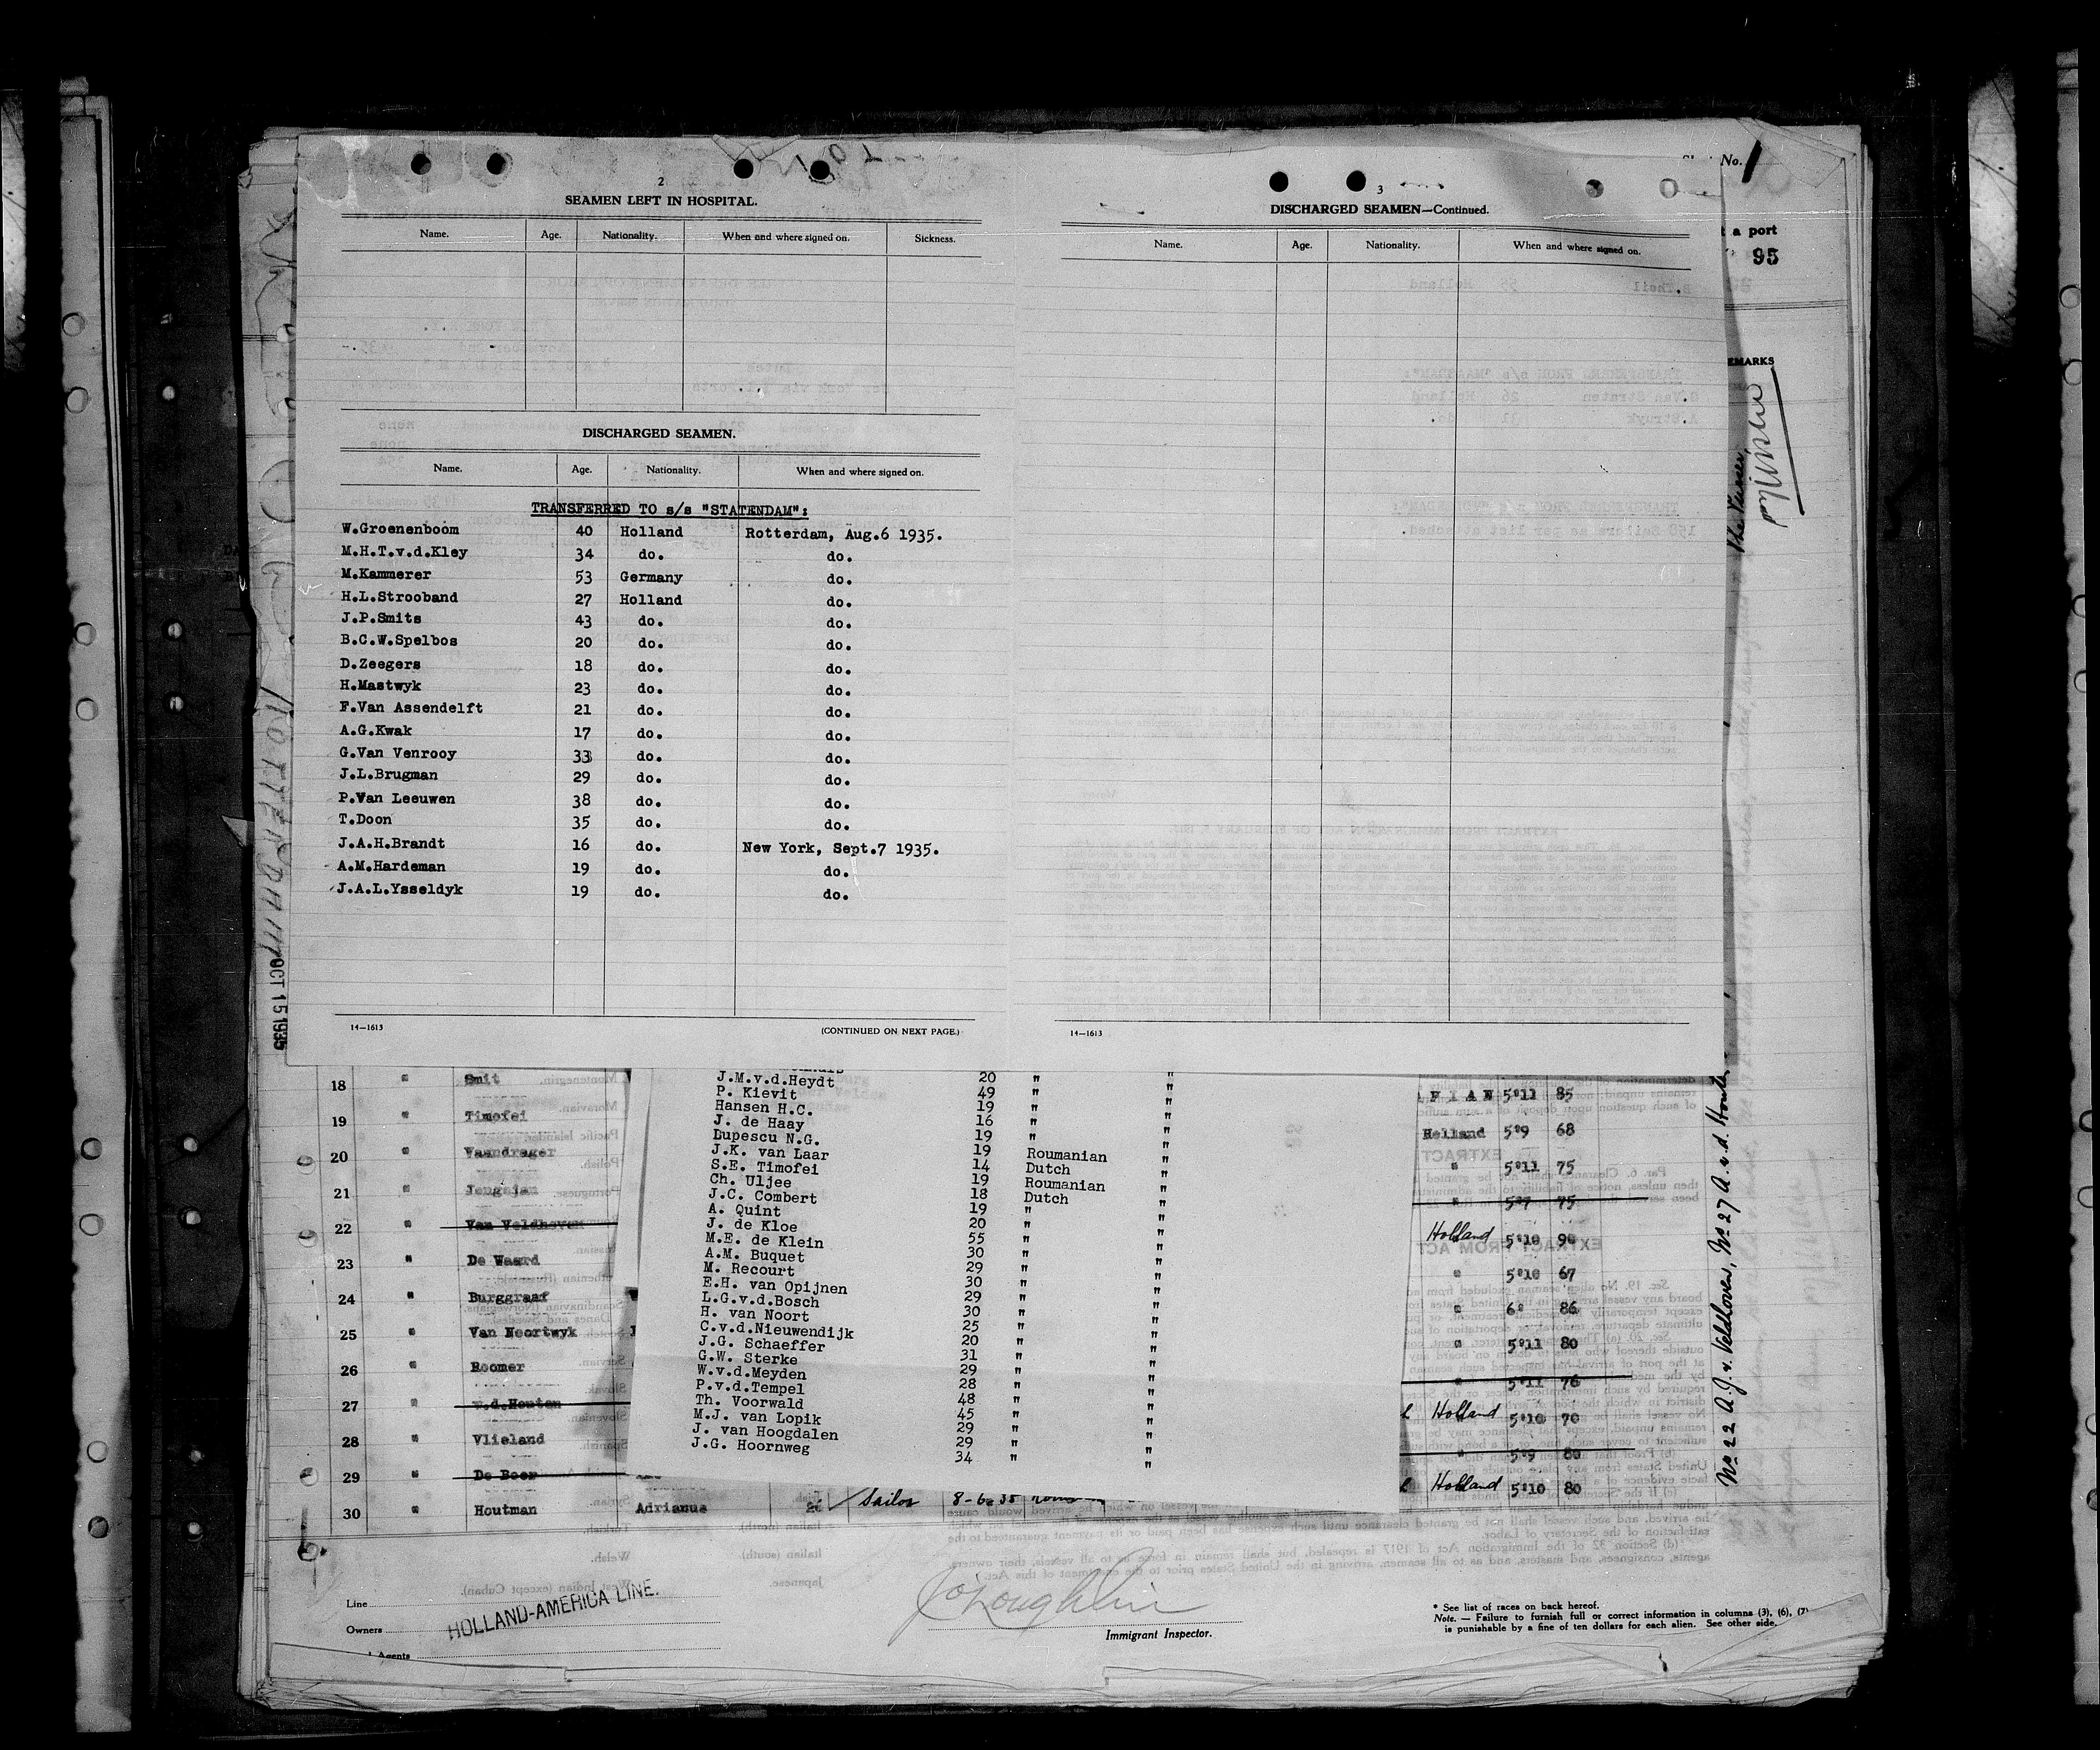 2
SEAMEN LEFT IN HOSPITAL.
Name. Age. Nationality. When and where signed on. Sickness.
DISCHARGED SEAMEN.
Name. Age. Nationality. When and where signed on.
TRANSFERRED TO s/s "STATENDAM":
W.Groenenboom 40 Holland Rotterdam, Aug.6 1935.
M.H.T.v.d.Kley 34 do. do.
M.Kammerer 53 Germany do.
H.L.Strooband 27 Holland do.
J.P.Smits 43 do. do.
B.C.W.Spelbos 20 do. do.
D.Zeegers 18 do. do.
H.Mastwyk 23 do. do.
F.Van Assendelft 21 do. do.
A.G.Kwak 17 do. do.
G.Van Venrooy 33 do. do.
J.L.Brugman 29 do. do.
P.Van Leeuwen 38 do. do.
T.Doon 35 do. do.
J.A.H.Brandt 16 do. New York, Sept.7 1935.
A.M.Hardeman 19 do. do.
J.A.L.Ysseldyk 19 do. do.
14—1613 (CONTINUED ON NEXT PAGE.)
3
DISCHARGED SEAMEN—Continued.
Name. Age. Nationality. When and where signed on.
14—1613
No. 1
a port
95
EMARKS
ROTTERDAM
OCT 15 1935
18 " Smit
19 " Timofei
20 " Vaandrager
21 " Jengajan
22 " Van Veldhoven
23 " De Waard
24 " Burggraaf
25 " Van Noortwyk
26 " Roomer
27 " v.d.Houten
28 " Vlieland
29 " De Boer
30 " Houtman Adrianus 26 Sailor 8-6-35
J.M.v.d.Heydt 20 " "
P. Kievit 49 " "
Hansen H.C. 19 " "
J. de Haay 16 " "
Lupescu N.G. 19 " "
J.K. van Laar 19 Roumanian "
S.E. Timofei 14 Dutch "
Ch. Uljee 19 Roumanian "
J.C. Combert 18 Dutch "
A. Quint 19 " "
J. de Kloe 20 " "
M.E. de Klein 55 " "
A.M. Buquet 30 " "
M. Recourt 29 " "
E.H. van Opijnen 30 " "
L.G.v.d.Bosch 29 " "
H. van Noort 30 " "
C.v.d.Nieuwendijk 25 " "
J.G. Schaeffer 20 " "
G.W. Sterke 31 " "
W.v.d.Meyden 29 " "
P.v.d.Tempel 28 " "
Th. Voorwald 48 " "
M.J. van Lopik 45 " "
J. van Hoogdalen 29 " "
J.G. Hoornweg 29 " "
34 " "
5'11 85
Holland 5'9 68
" 5'11 75
" 5'7 75
Holland 5'10 90
" 5'10 67
" 6' 86
" 5'11 80
" 5'11 76
Holland 5'10 70
" 5'9 80
Holland 5'10 80
No 22 A.J. v. Veldhoven, No 27 A. v.d. Houten
Line
Owners
HOLLAND-AMERICA LINE.
Agents
J O'Loughlin
Immigrant Inspector.
* See list of races on back hereof.
Note. — Failure to furnish full or correct information in columns (3), (6), (7)
is punishable by a fine of ten dollars for each alien. See other side.